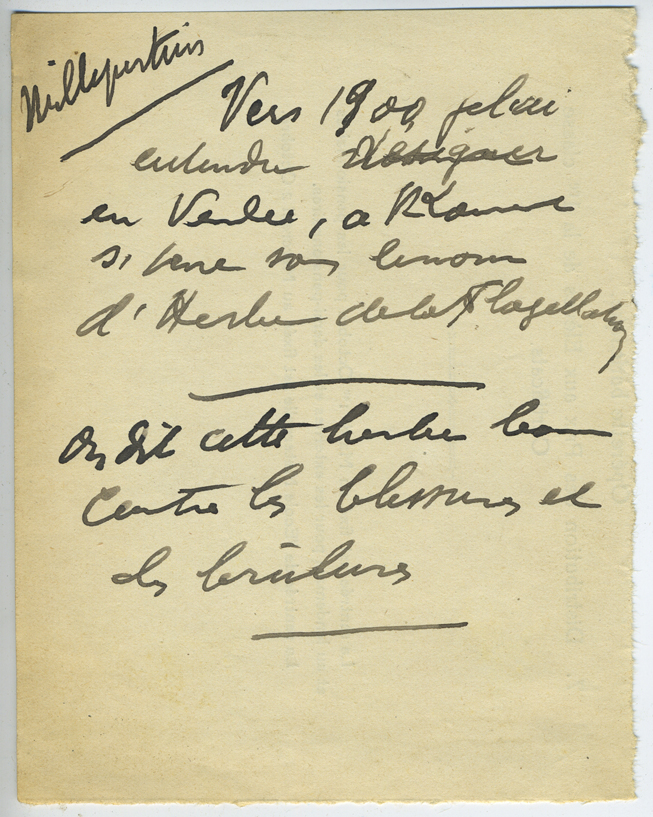 Millepertuis
Vers 1900 je l'ai
entendu désigner
en Vendée, a
sous le nom
d'Herbe de la Flagellation
On dit cette herbe bonne
contre les blessures et
les brûlures